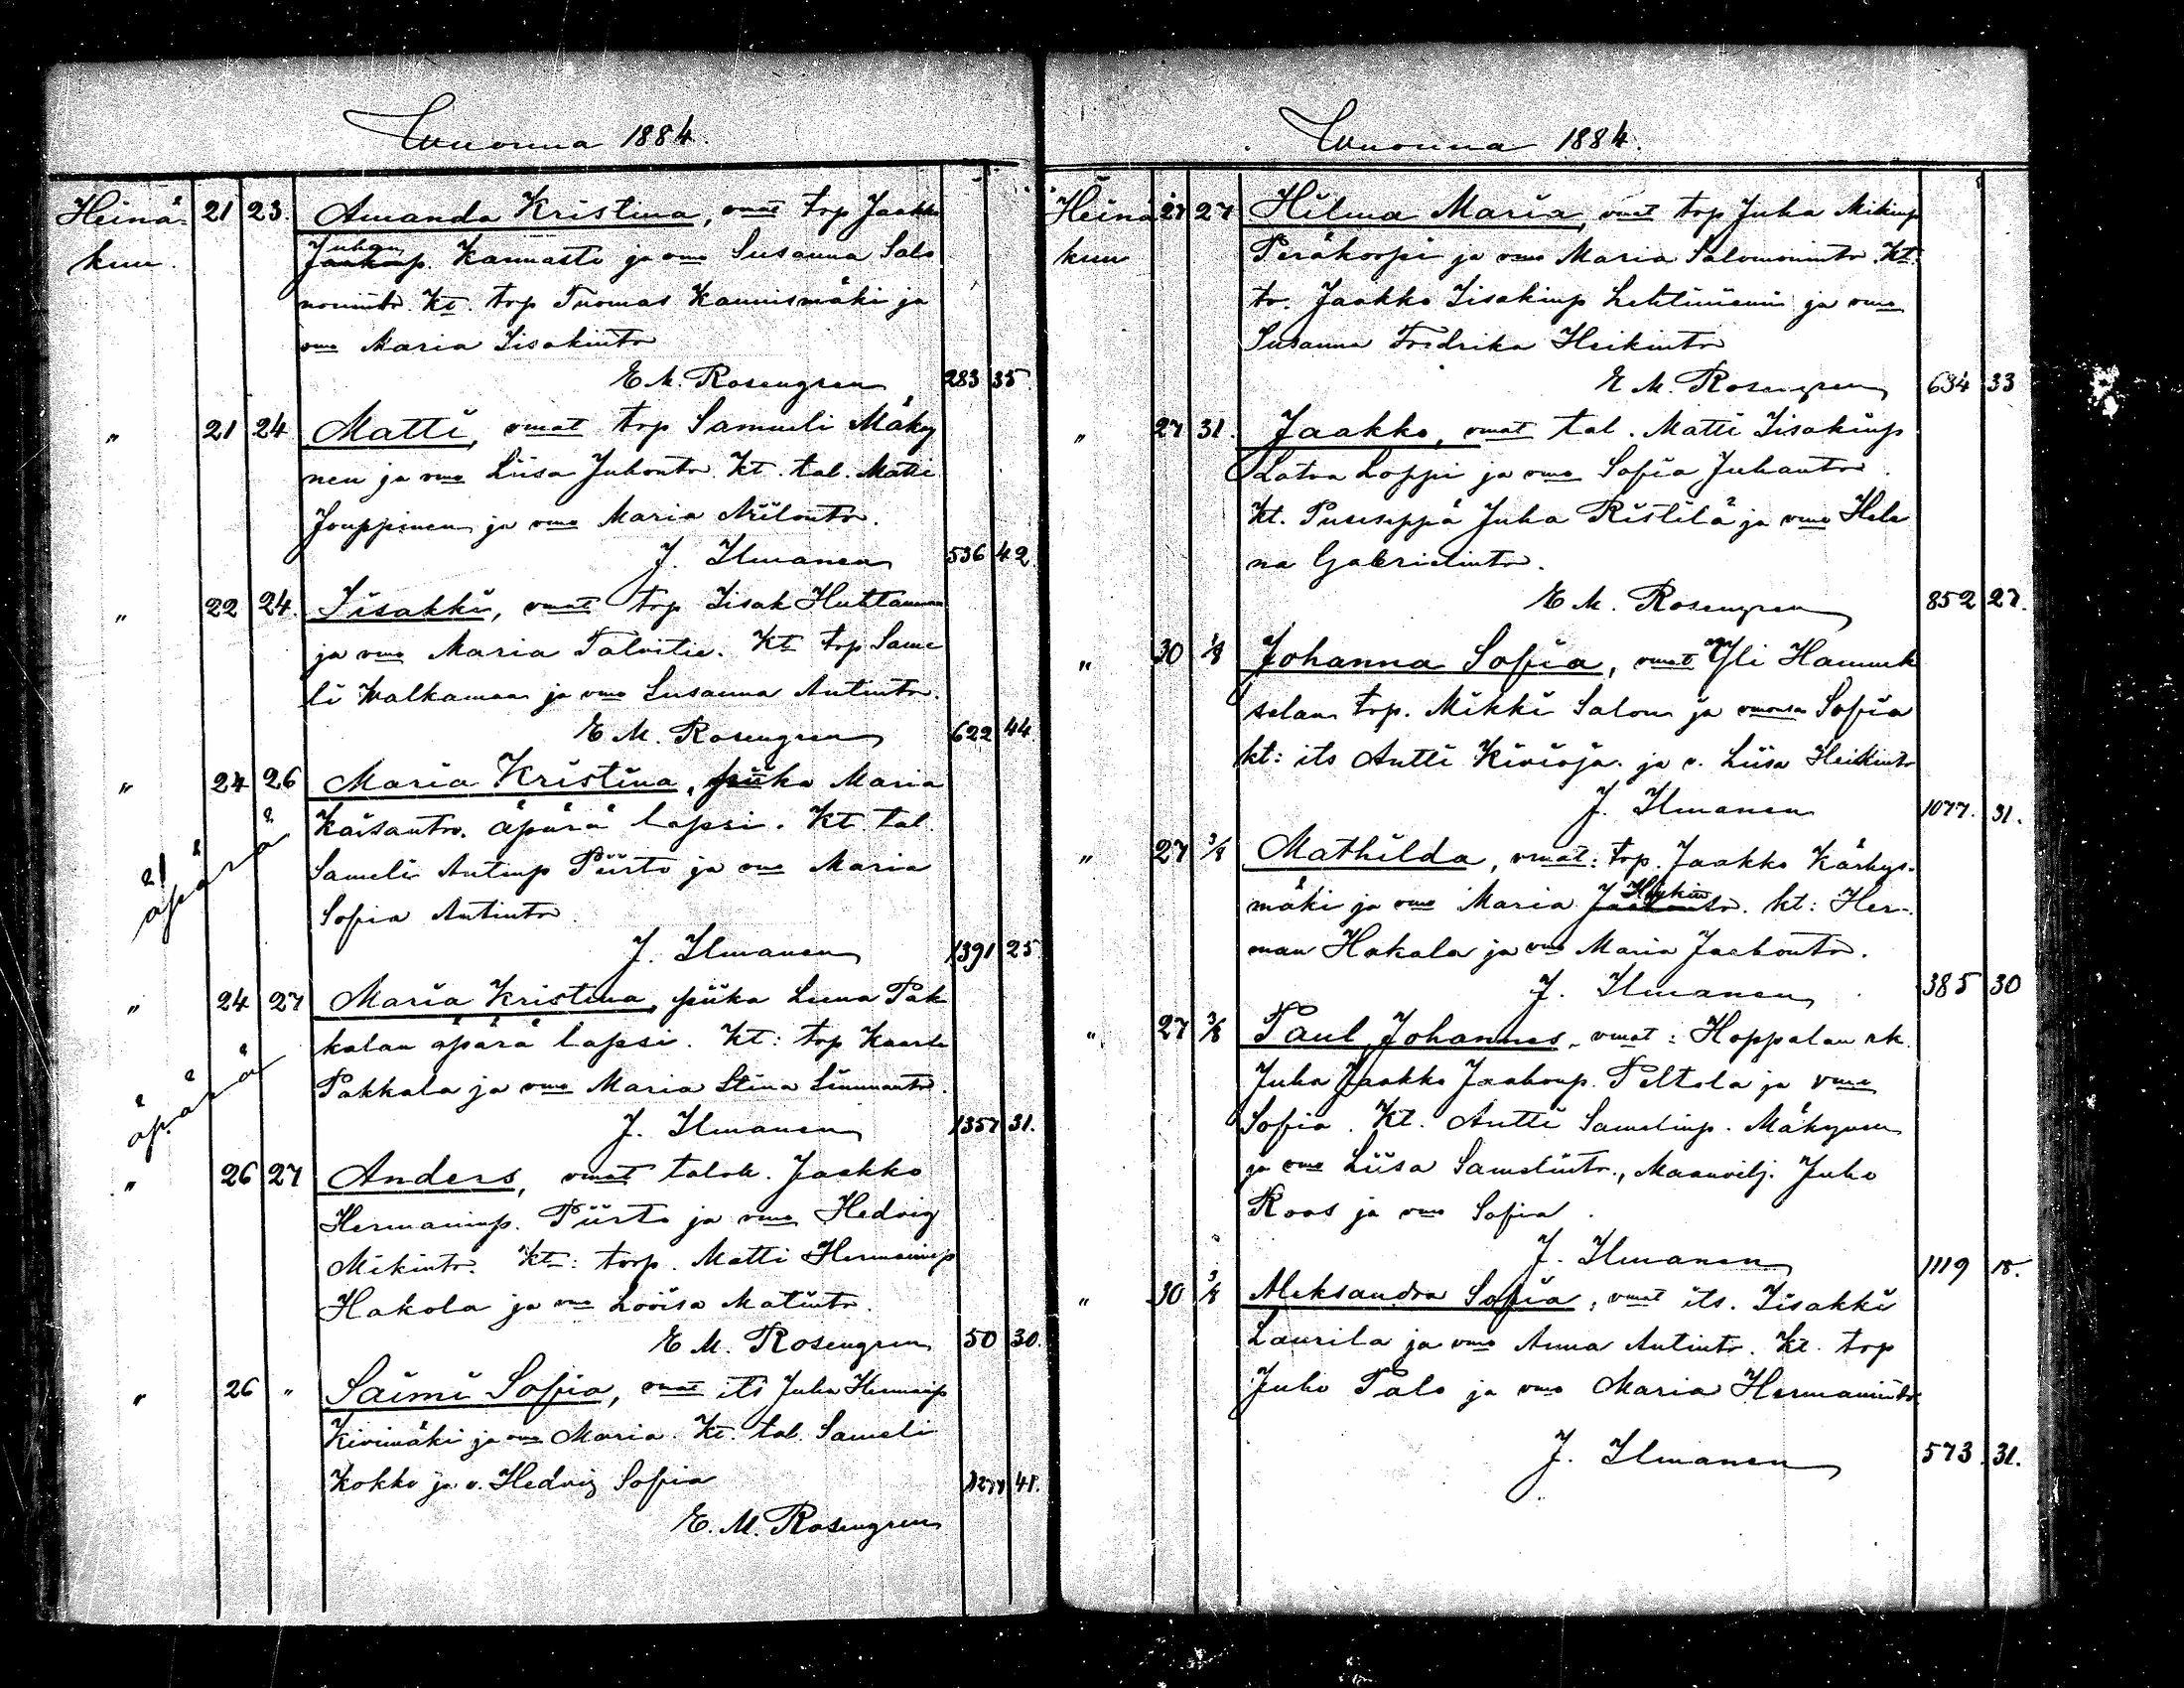 Wuonna 1884.
Heinä- 21 23. Amanda Kristina, vmat trp Jaakko
kuu. Juhan Jaakonp. Kannasto ja vmo Susanna Salo
monintr. Kt. trp Tuomas Kaunismäki ja
vmo Maria Iisakintr
E M. Rosengren 283 35
" 21 24 Matti, vmat trp Samueli Mäky
nen ja vmo Liisa Juhontr. Kt. tal. Matti
Jouppinen ja vmo Maria Niilontr.
J. Ilmanen 536 42
" 22 24. Iisakki, vmat trp Iisak Huhtamaa
ja vmo Maria Talvitie. Kt trp Same
li Walkamaa ja vmo Susanna Antintr.
E M. Rosengren 622 44
" 24 26 Maria Kristina, piika Maria
äpärä Kaisantr. äpärä lapsi. Kt. tal.
21 Sameli Antinp Piirto ja vmo Maria
Sofia Antintr.
J. Ilmanen 1391 25
" 24 27 Maria Kristina, piika Leena Pak
äpärä kalan äpärä lapsi. Kt: trp Kaarle
Pakkala ja vmo Maria Stina Simmantr.
J. Ilmanen 1357 31.
" 26 27 Anders, vmat talok. Jaakko
Hermaninp. Piirto ja vmo Hedvig
Mikintr. Kt: torp. Matti Hermaninp
Hakola ja vmo Loviisa Matintr.
E M. Rosengren 50 30.
" 26 " Saimi Sofia, vmat its Juha Hermanp
Kivimäki ja vmo Maria. Kt. tal. Sameli
Kokko ja v. Hedvig Sofia 1277 41.
E. M. Rosengren
Wuonna 1884.
Heinä 27 27 Hilma Maria, vmat trp Juha Mikinp
kuu Peräkorpi ja vmo Maria Salomonintr. Kt.
tr. Jaakko Iisakinp Lehtiniemi ja vmo
Susanna Fredrika Heikintr
E M. Rosengren 634 33
" 27 31. Jaakko, vmat tal. Matti Iisakinp
Latva Loppi ja vmo Sofia Juhantr.
Kt. Puuseppä Juha Ristilä ja vmo Hele
na Gabrielintr.
E M. Rosengren 852 27.
" 30 1/8 Johanna Sofia, vmat Yli Hannuk
selan trp. Mikki Salon ja vmonsa Sofia
kt: its Antti Kivioja. ja v. Liisa Heikintr
J. Ilmanen 1077. 31.
" 27 3/8 Mathilda, vmat: trp. Jaakko Kärkys-
mäki ja vmo Maria Jaakontr. kt: Her-
man Hakala ja vmo Maria Jaakontr.
J. Ilmanen 385 30
" 27 3/8 Paul Johannes, vmat: Hoppalan rk.
Juha Jaakko Jaakonp. Peltola ja vmo
Sofia. Kt. Antti Samelinp. Mäkynen
ja vmo Liisa Samelintr., Maanvilj. Juho
Roos ja vmo Sofia.
J. Ilmanen 1119 18.
" 30 3/8 Aleksandra Sofia, vmat its. Iisakki
Laurila ja vmo Anna Antintr. Kt. trp
Juho Palo ja vmo Maria Hermanintr
J. Ilmanen 573 31.